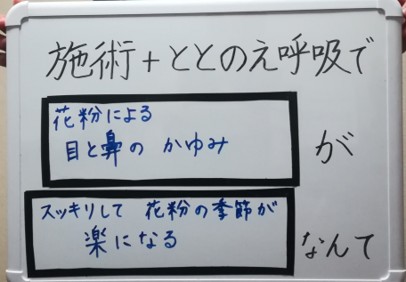 施術+ととのえ呼吸で
花粉による
目と鼻の かゆみ
が
スッキリして 花粉の季節が
楽になる
なんて